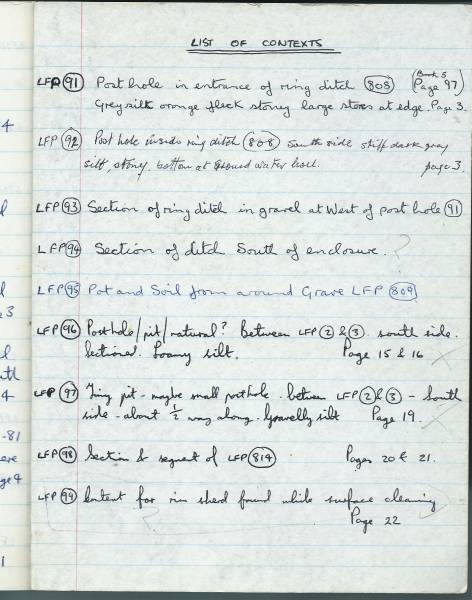 LIST OF CONTEXTS
LFP 91 Post hole in entrance of ring ditch 808 (Book 5 Page 97)
Grey silt orange fleck stoney large stones at edge. Page 3.
LFP 92 Post hole inside ring ditch (808) South side stiff dark gray
silt, stoney. bottom at ground water level. page 3.
LFP 93 Section of ring ditch in gravel at West of post hole 91
LFP 94 Section of ditch South of enclosure. ?
LFP 95 Pot and Soil from around Grave LFP 809
LFP 96 Posthole/pit/natural? Between LFP 2 & 3 south side.
Sectioned. Loamy silt. Page 15 & 16
LFP 97 Tiny pit - maybe small posthole. between LFP 2 & 3 - South
side - about ½ way along. Gravelly silt Page 19.
LFP 98 Section & segment of LFP 814 Pages 20 & 21.
LFP 99 Context for rim sherd found while surface cleaning
Page 22
4
3
4
-81
ere
ge 4
1